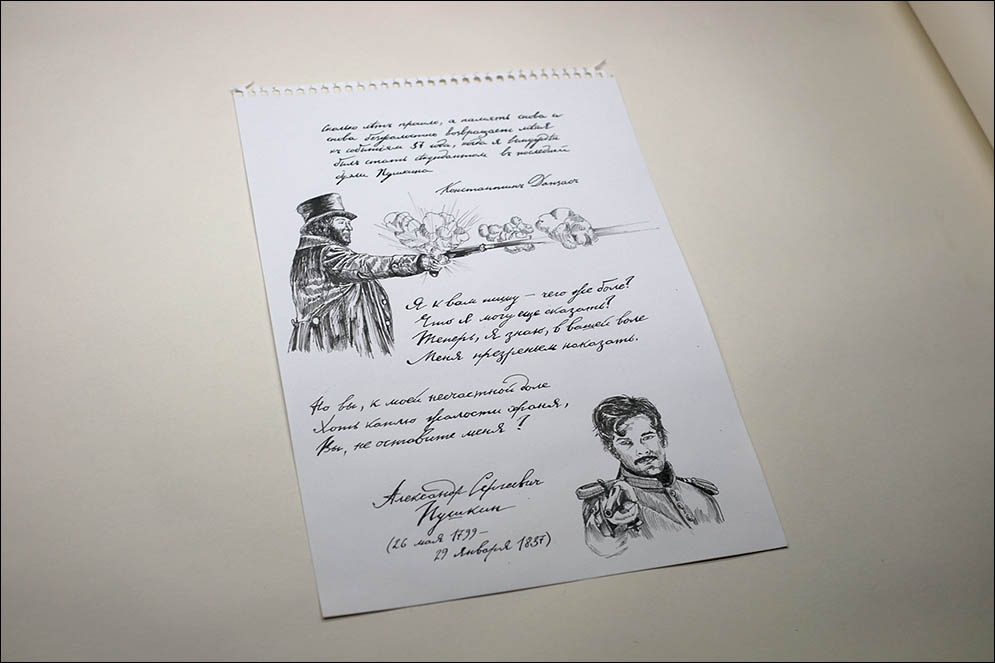 Сколько лѣтъ прошло, а память снова и
снова безжалостно возвращает меня
къ событиям 37 года, когда я вынужден
былъ стать секундантом въ последней
дуэли Пушкина
Константинъ Данзасъ
Я к вам пишу – чего же боле?
Что я могу еще сказать?
Теперь, я знаю, в вашей воле
Меня презреньем наказать.
Но вы, к моей несчастной доле
Хоть каплю жалости храня,
Вы, не оставите меня?
Александр Сергеевич
Пушкин
(26 мая 1799 –
29 января 1837)